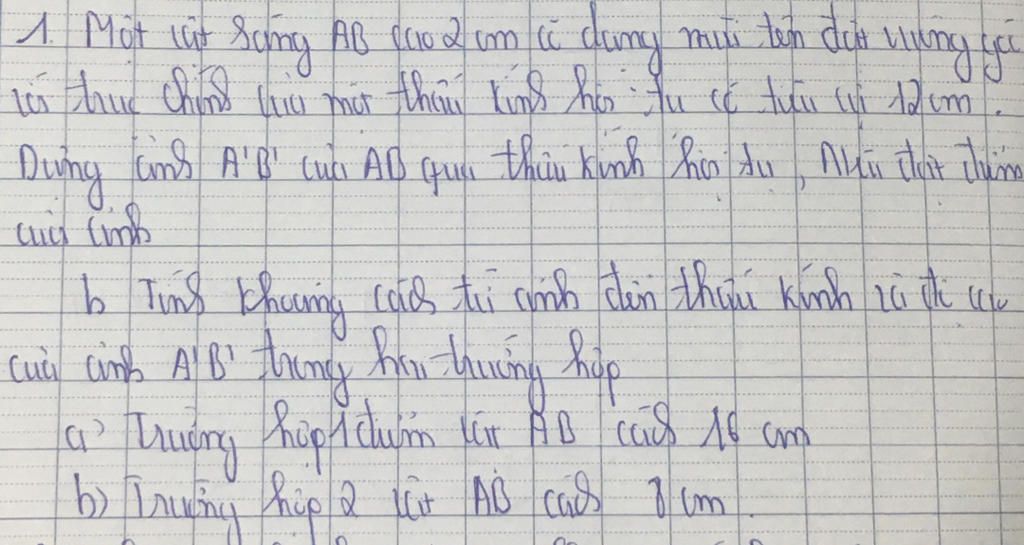 1. Một vật sáng AB cao 2 cm có dạng mũi tên đặt vuông góc
với trục chính của một thấu kính hội tụ có tiêu cự 12 cm.
Dựng ảnh A'B' của AB qua thấu kính hội tụ, Nêu đặt điểm
của ảnh
b Tính khoảng cách từ ảnh đến thấu kính và độ cao
của ảnh A'B' trong hai trường hợp
a) Trường hợp 1 điểm vật AB cách 16 cm
b) Trường hợp 2 vật AB cách 8 cm